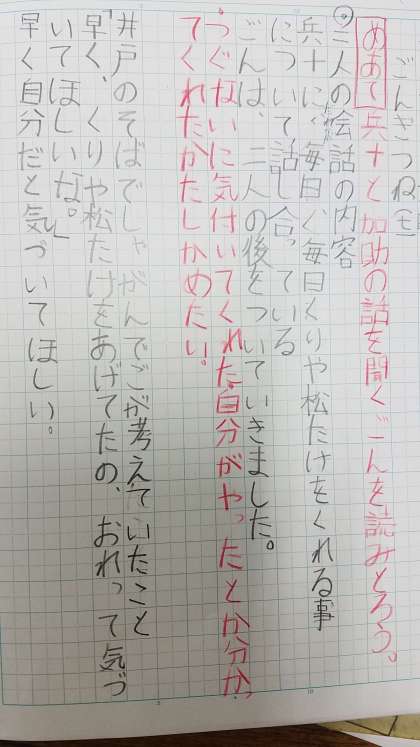 ごんぎつね(五)
めあて 兵十と加助の話を聞くごんを読みとろう。
◎二人の会話の内容
兵十に、だれかが毎日、毎日くりや松たけをくれる事
について話し合っている
ごんは、二人の後をついていきました。
・つぐないに気付いてくれた。自分がやったとか分かっ
てくれたかたしかめたい。
井戸のそばでしゃがんでごが考えていたこと
「早く、くりや松たけをあげてたの、おれって気づ
いてほしいな。」
早く自分だと気づいてほしい。